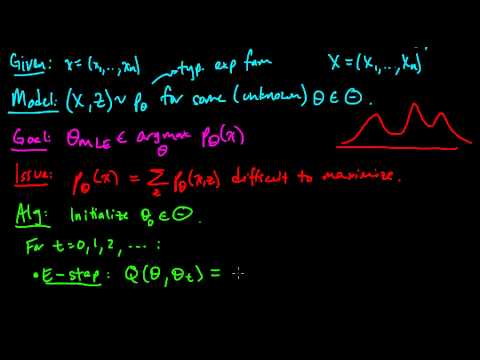 Given: x = (x₁,...,xₙ) typ. exp fam X = (X₁,...,Xₙ)
Model: (X,Z) ~ p_θ for some (unknown) θ ∈ Θ.
Goal: θ_MLE ∈ argmax_θ p_θ(x)
Issue: p_θ(x) = Σ_z p_θ(x,z) difficult to maximize.
Alg: Initialize θ₀ ∈ Θ.
For t=0,1,2,...:
• E-step: Q(θ,θ_t) =